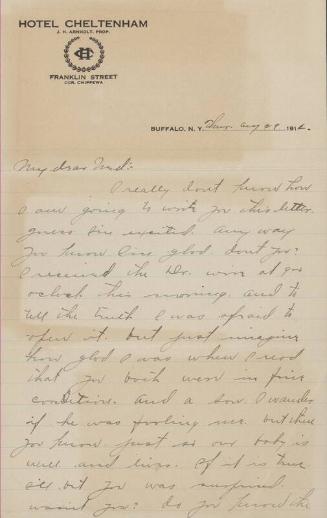 HOTEL CHELTENHAM
J. H. ARNHOLT, PROP.
CH
FRANKLIN STREET
COR. CHIPPEWA
BUFFALO, N.Y. Thur. Aug 29 1912.
My dear Maid:
I really don't know how
I am going to write you this letter.
guess I'm excited. Any way
you know I'm glad. don't you?
I received the Dr. wire at
oclock this morning. And to
tell the truth I was afraid to
open it. but just imagine
how glad I was when I read
that you both were in fine
condition. And a son. I wonder
if he was fooling me. but then
you know just so our baby is
well and lives. If it is true
ill bet you was surprised.
wasn't you? do you know the